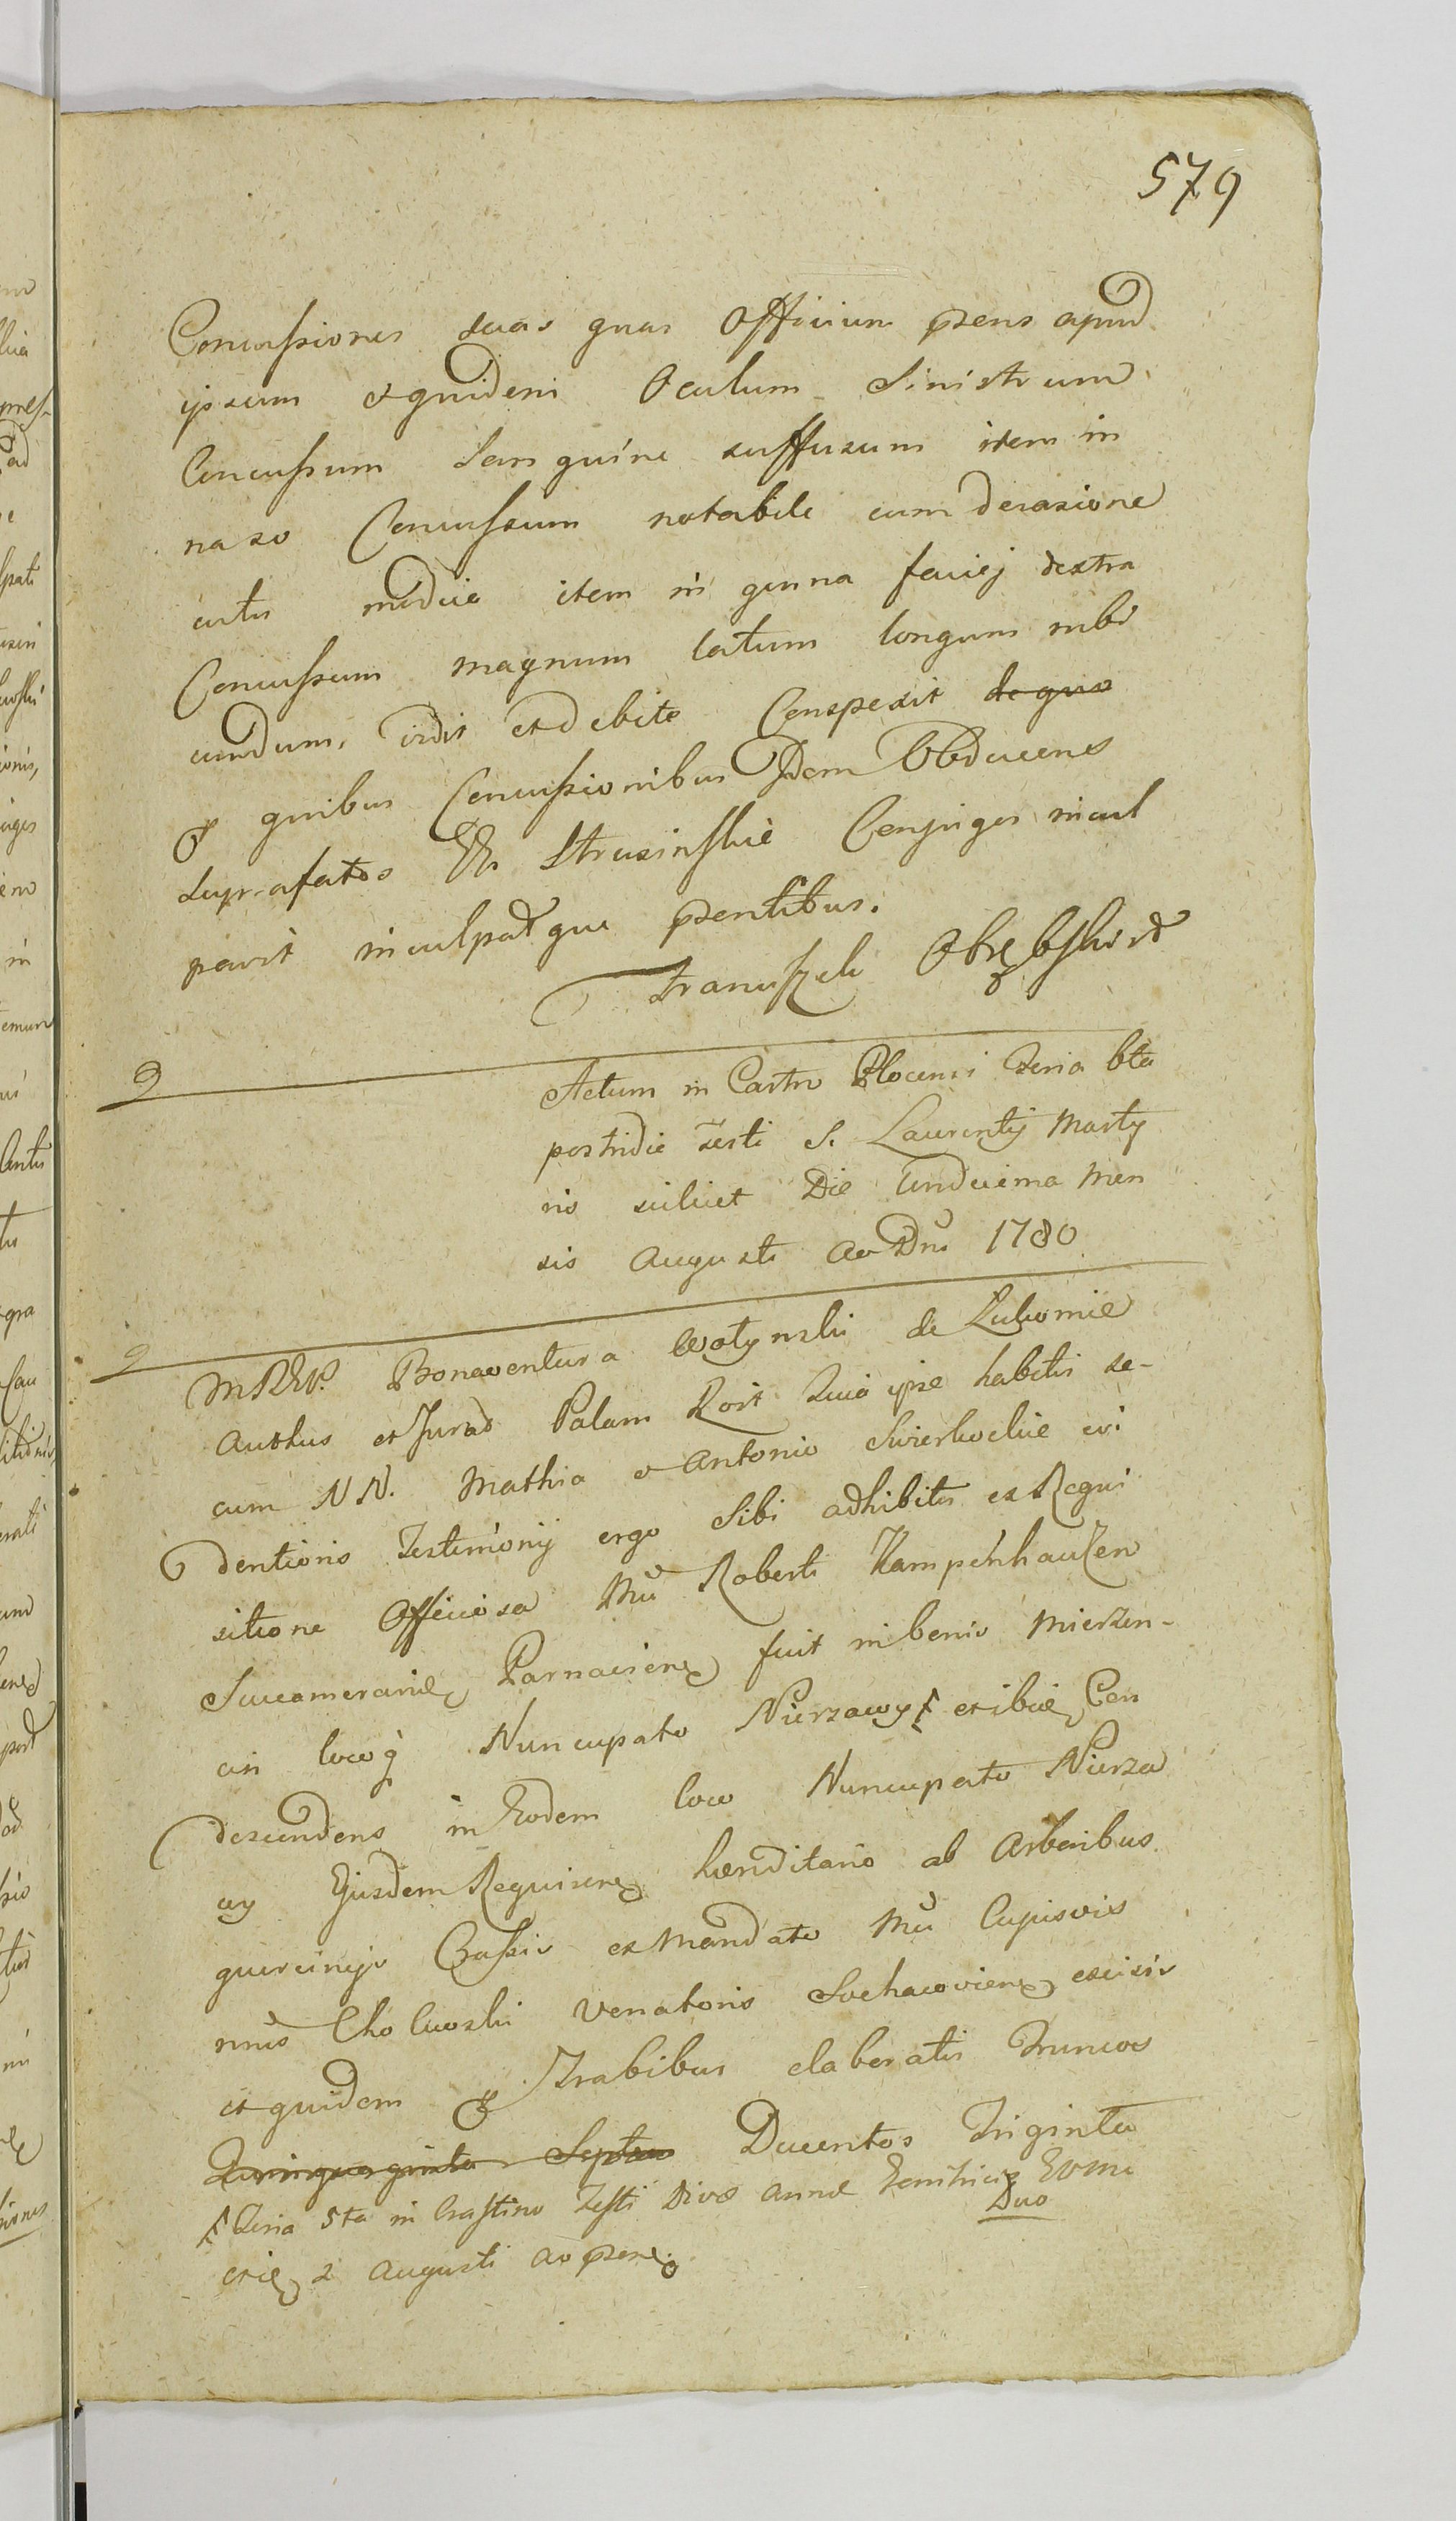 579
Concussiones suas quas Officium pzens apud
ipsum et quidem Oculum Sinistrum
Concussum Sanguine suffusum item in
naso Concussum notabile cum derasione
cutis modice item in genna faciej dextra
Concussum magnum latum longum rubi
cundum, vidit et debite Conspexit de quo
quibus Concussionibus Idem Obducens
suprafatos Strusinskie Conjuges incul
pavit inculpatque pzentibus.
Franciszek Obrębski
Actum in Castro Plocensi Feria 6ta
postridie Festi S. Laurentij Marty
ris scilicet Die Undecima Men
sis Augusti Ao Dni 1780
Bonaventura Wołynski de
cum NN. Mathia et Antonio Swierkockie evi
dentioris Testimonij ergo Sibi adhibitis ex Requi
sitione Officiosa Mci Roberti Kampenhauzen
Succamerarid Parnavien fuit in bonis Mierzen-
cin locoq Nuncupato Nierzawy et ibiq Con
descendens in Eodem loco Nuncupato Nierza
wy Ejusdem Requiren hæreditario ab Arboribus
quercinijs Crassis ex Mandato Mci Cujusvis
nnis Cholewski Venatoris Sochacovien excisis
et quidem Trabibus elaboratis Truncos
Quinquaginta Septem Ducentos Triginta
Duo
Feria 5ta in Crastino Festi Divæ Annæ
2 Augusti Ao pzen